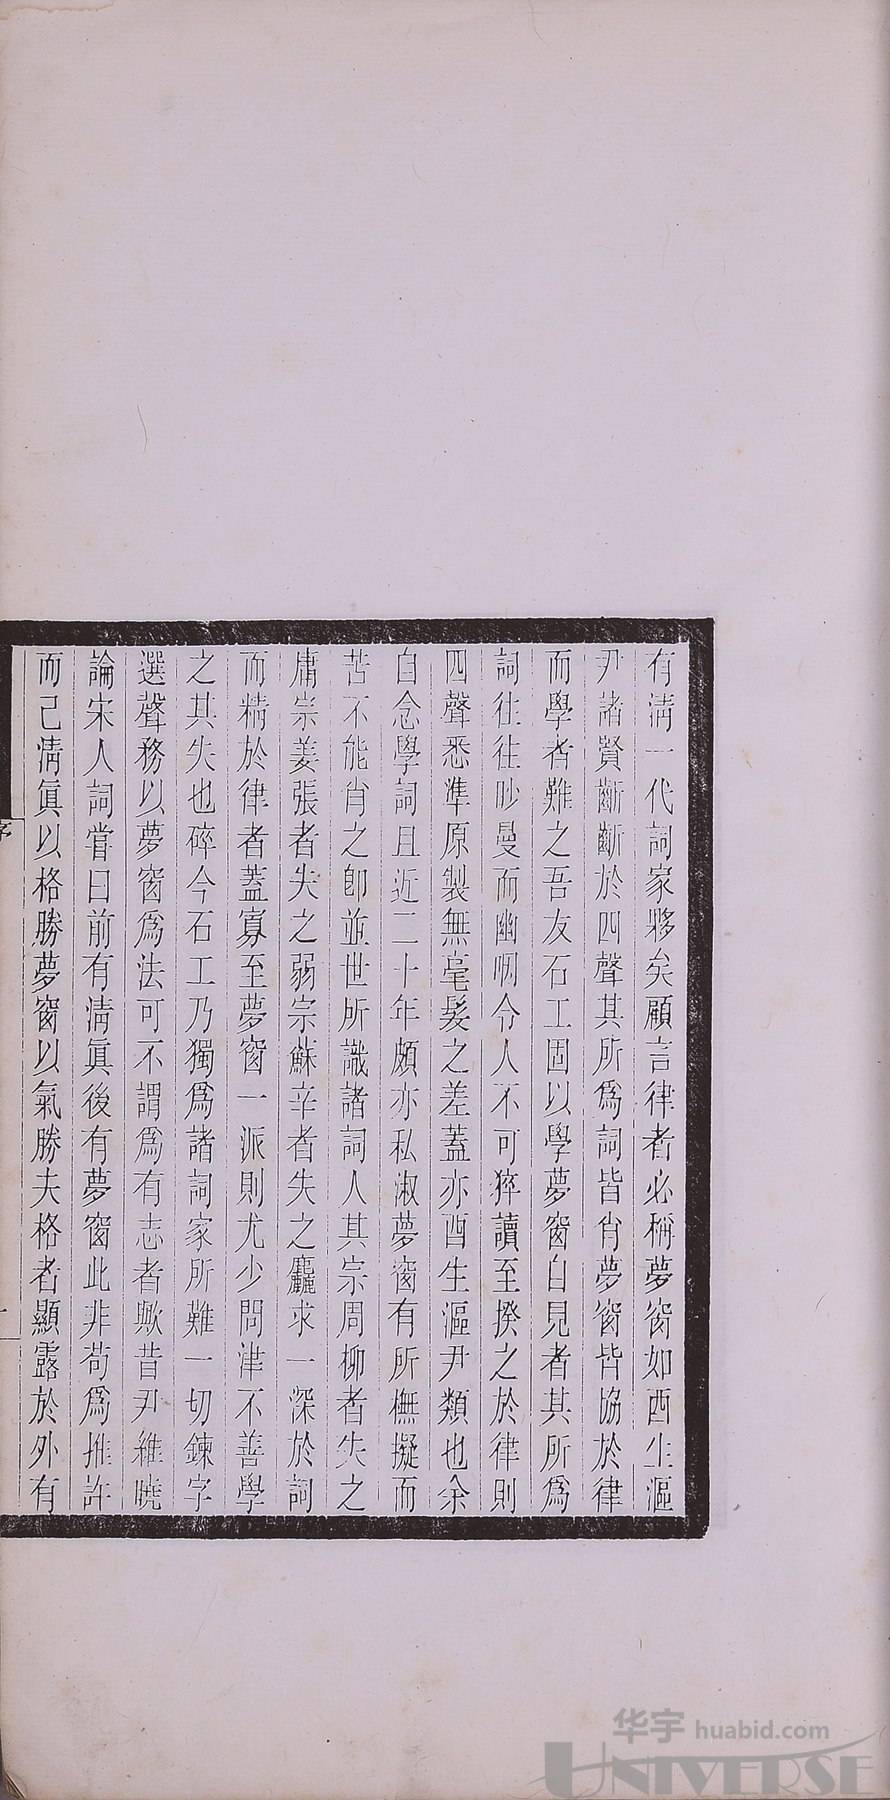 有淸一代詞家夥矣顧言律者必稱夢窗如酉生漚
尹諸賢齗齗於四聲其所爲詞皆肖夢窗皆協於律
而學者難之吾友石工固以學夢窗自見者其所爲
詞往往眇曼而幽咽令人不可猝讀至揆之於律則
四聲悉準原製無毫髮之差蓋亦酉生漚尹類也余
自念學詞且近二十年頗亦私淑夢窗有所橅擬而
苦不能肖之卽並世所識諸詞人其宗周柳者失之
庸宗姜張者失之弱宗蘇辛者失之麤求一深於詞
而精於律者蓋寡至夢窗一派則尤少問津不善學
之其失也碎今石工乃獨爲諸詞家所難一切鍊字
選聲務以夢窗爲法可不謂爲有志者歟昔尹維曉
論宋人詞嘗曰前有淸眞後有夢窗此非苟爲推許
而已淸眞以格勝夢窗以氣勝夫格者顯露於外有
序
一
华宇 huabid.com
UNIVERSE